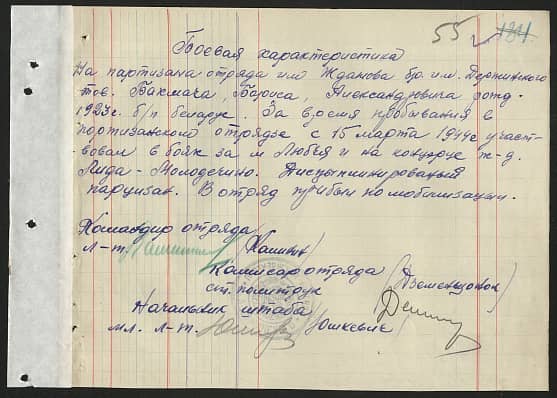 55 1241
Боевая характеристика
На партизана отряда им Жданова бр. им. Дзержинского
тов. Бакмача, Бориса, Александровича рожд.
1923г. б/п беларус. За время пребывания в
партизанском отрядзе с 15 марта 1944г участ-
вовал в боях за м Любча и на концруе ж-д.
Лида - Молодечно. Дисцыплинированый
парцизан. В отряд прибыл по мобилизацыи.
Командир отряда
л-т /Калинин/
Комисар отряда /Дземенцонок/
ст. политрук
Начальник штаба
мл. л-т. /Юшкевич/